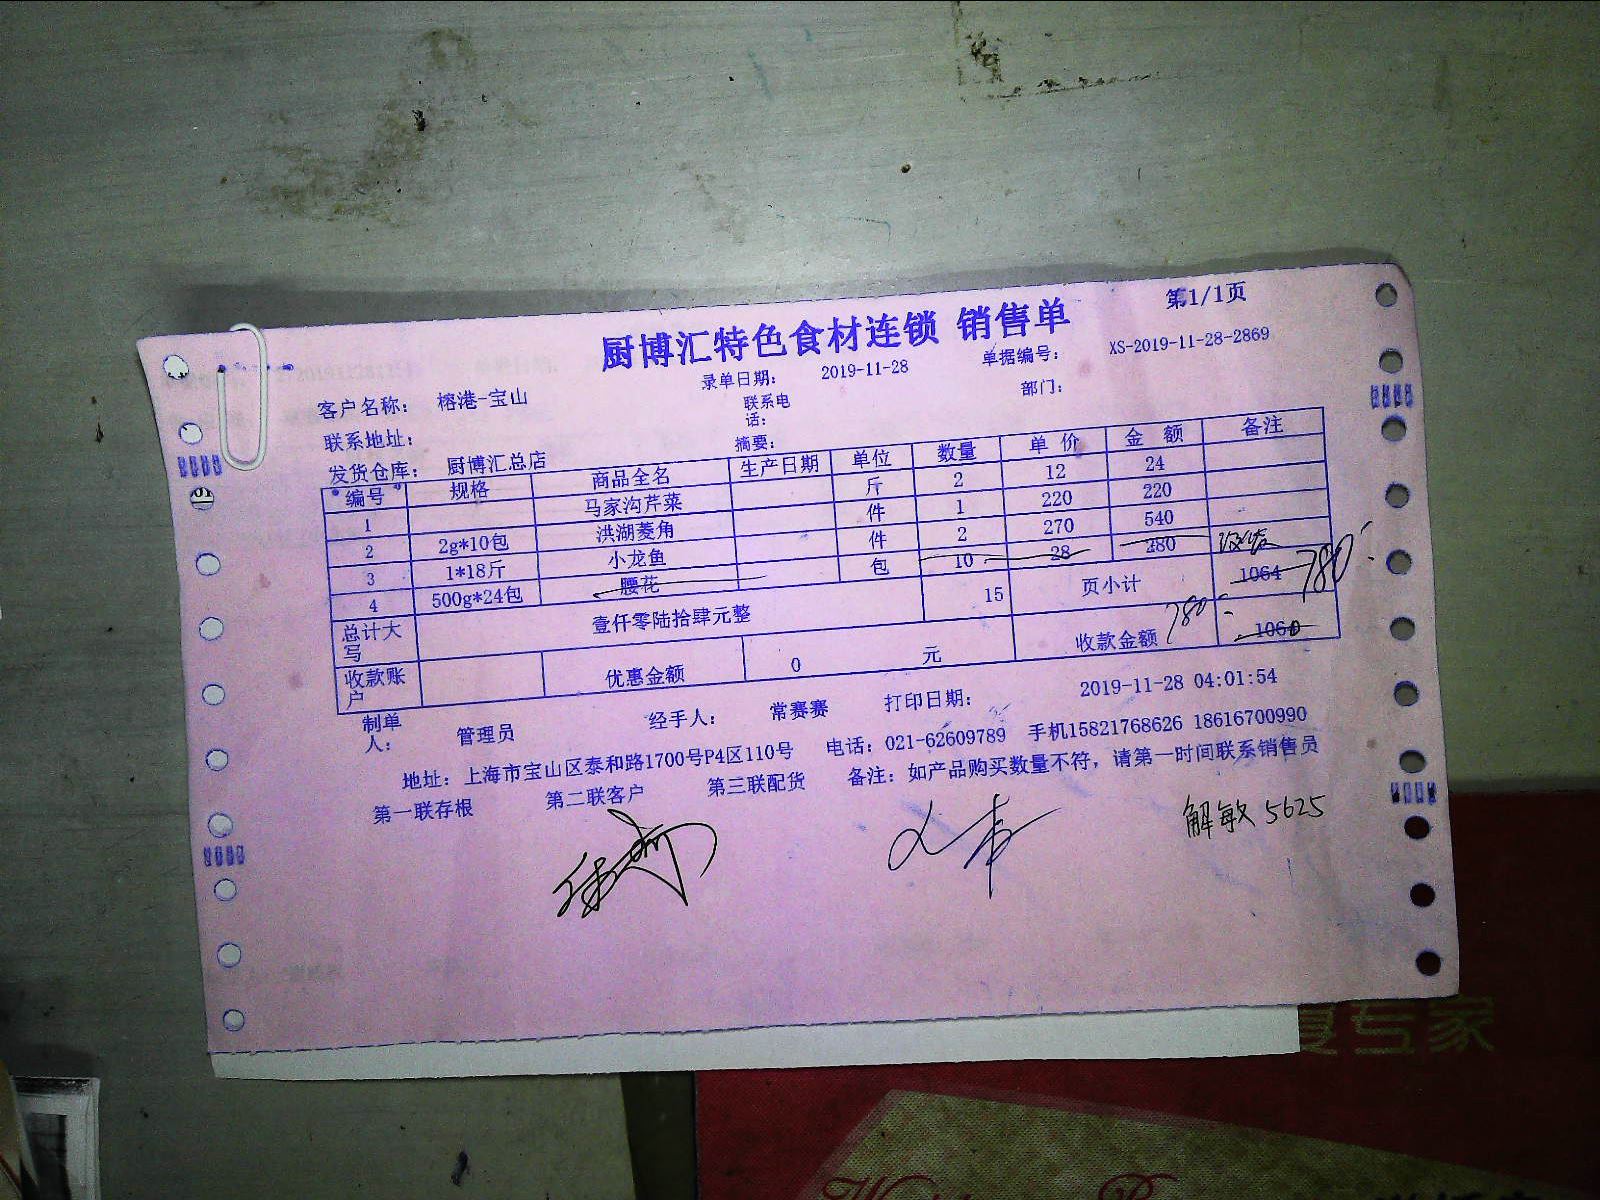 厨博汇特色食材连锁 销售单 第1/1页
录单日期: 2019-11-28 单据编号: XS-2019-11-28-2869
客户名称: 榕港-宝山 联系电话: 部门:
联系地址: 摘要:
发货仓库: 厨博汇总店
编号 规格 商品全名 生产日期 单位 数量 单价 金额 备注
1 马家沟芹菜 斤 2 12 24
2 2g*10包 洪湖菱角 件 1 220 220
3 1*18斤 小龙鱼 件 2 270 540
4 500g*24包 腰花 包 10 28 280
总计大写 壹仟零陆拾肆元整 15 页小计 1064 780
收款账户 优惠金额 0 元 收款金额 780 1060
制单人: 管理员 经手人: 常赛赛 打印日期: 2019-11-28 04:01:54
地址: 上海市宝山区泰和路1700号P4区110号 电话: 021-62609789 手机15821768626 18616700990
第一联存根 第二联客户 第三联配货 备注: 如产品购买数量不符, 请第一时间联系销售员
解敏 5625
专家